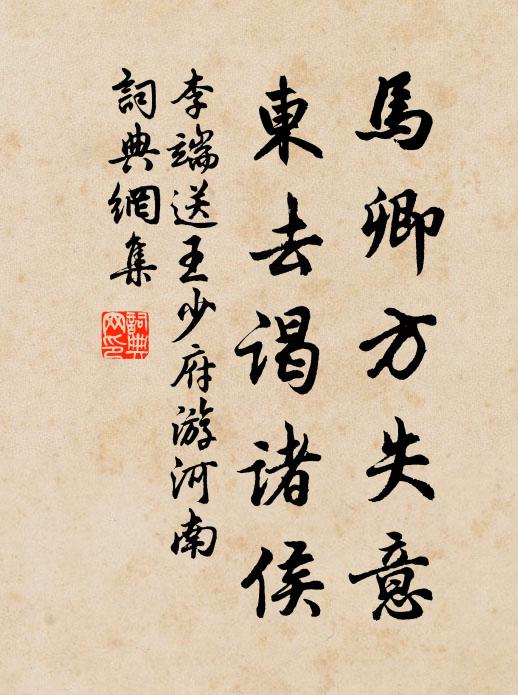 馬卿方失意
東去谒诸侯
李端送王少府游河南
詞典網集
詞典網印